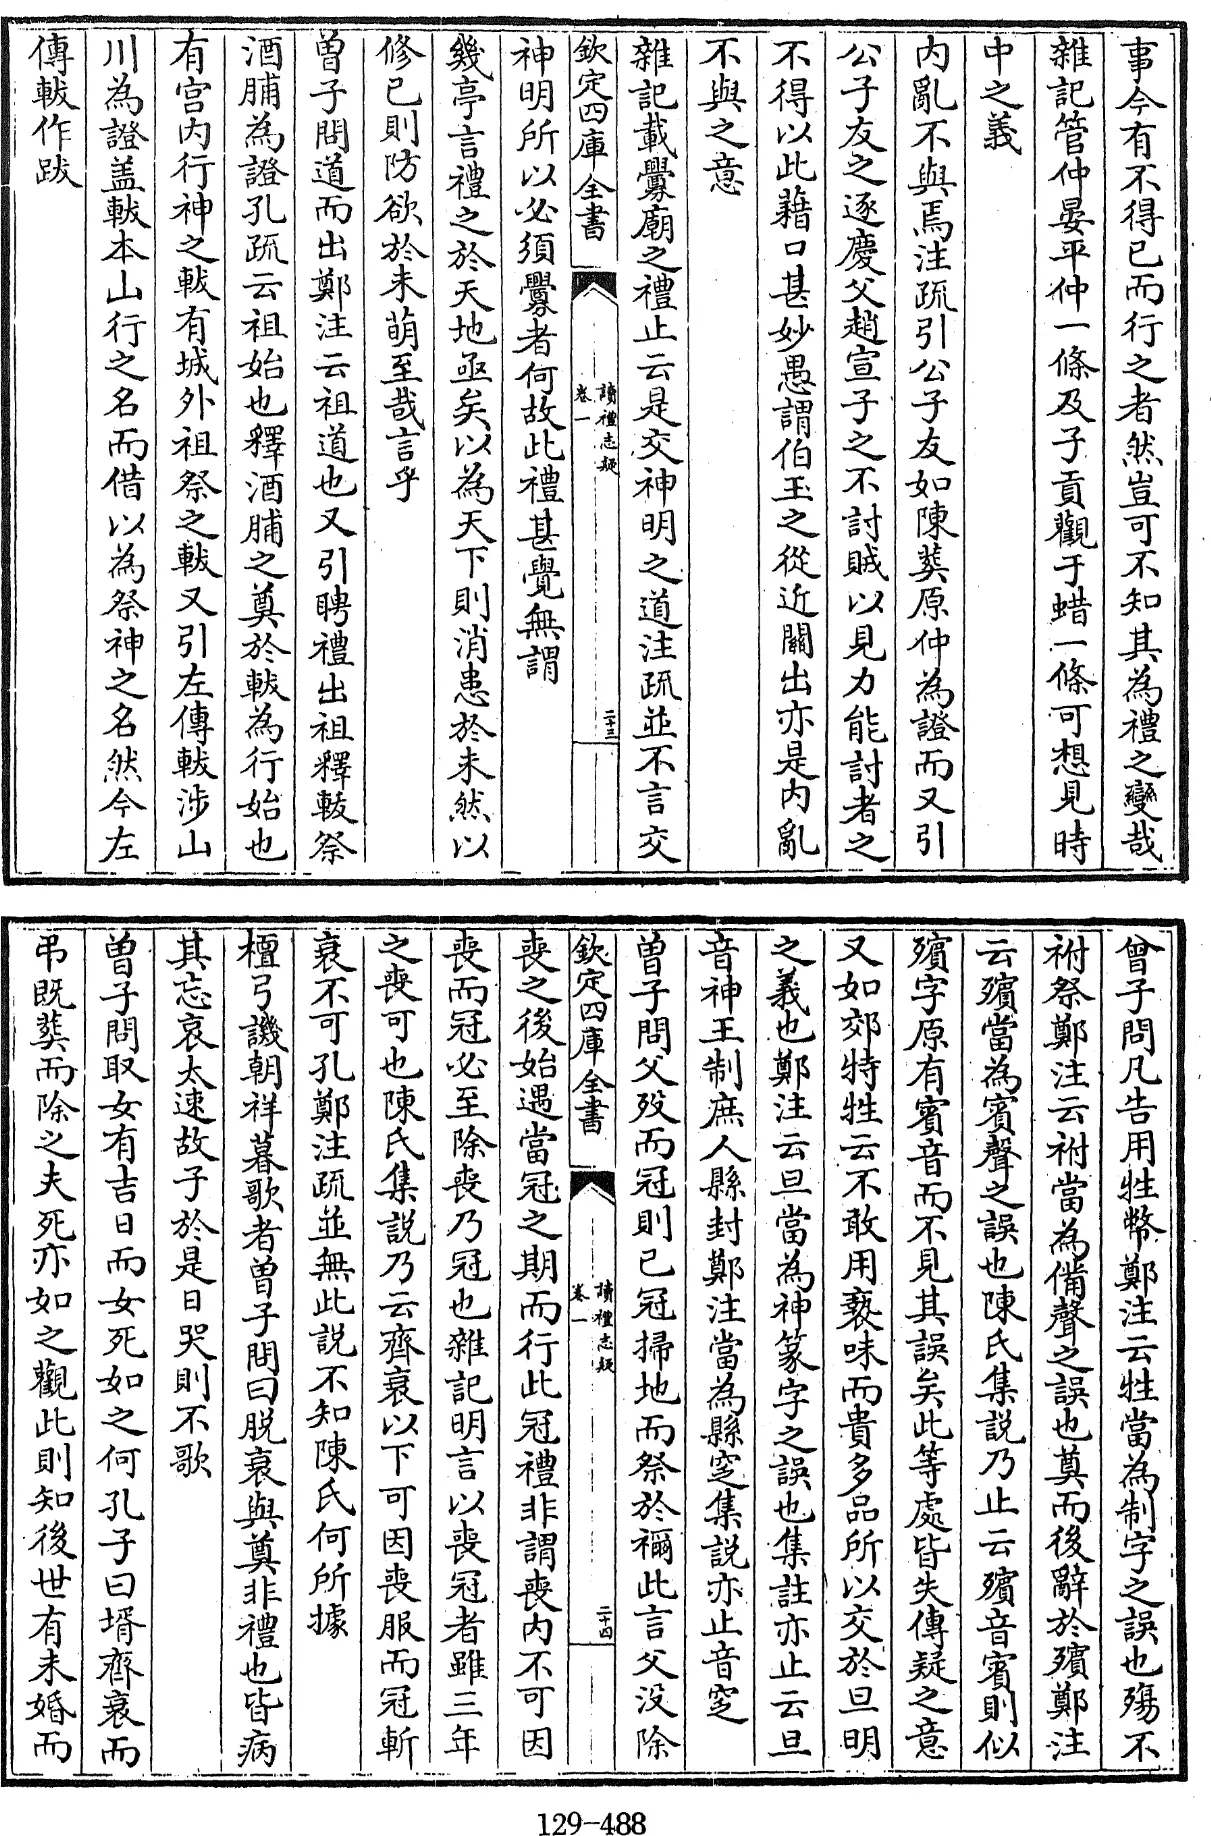 事今有不得已而行之者然豈可不知其為禮之變哉
雜記管仲晏平仲一條及子貢觀于蜡一條可想見時
中之義
內亂不與焉注疏引公子友如陳葬原仲為證而又引
公子友之逐慶父趙宣子之不討賊以見力能討者之
不得以此藉口甚妙愚謂伯玉之從近關出亦是内亂
不與之意
雜記載釁廟之禮止云是交神明之道注疏並不言交
欽定四庫全書
讀禮志疑
卷一
二十三
神明所以必須釁者何故此禮甚覺無謂
幾亭言禮之於天地亟矣以為天下則消患於未然以
修己則防欲於未萌至哉言乎
曽子問道而出鄭注云祖道也又引聘禮出祖釋軷祭
酒脯為證孔疏云祖始也釋酒脯之奠於軷為行始也
有宮内行神之軷有城外祖祭之軷又引左傳軷涉山
川為證盖軷本山行之名而借以為祭神之名然今左
傳軷作跋
曾子問凡告用牲幣鄭注云牲當為制字之誤也殤不
祔祭鄭注云祔當為備聲之誤也奠而後辭於殯鄭注
云殯當為賓聲之誤也陳氏集説乃止云殯音賓則似
殯字原有賓音而不見其誤矣此等處皆失傳疑之意
又如郊特牲云不敢用褻味而貴多品所以交於旦明
之義也鄭注云旦當為神篆字之誤也集註亦止云旦
音神王制庶人縣封鄭注當為縣窆集説亦止音窆
曽子問父歿而冠則已冠掃地而祭於禰此言父没除
欽定四庫全書
讀禮志疑
卷一
二十四
喪之後始遇當冠之期而行此冠禮非謂喪内不可因
喪而冠必至除喪乃冠也雜記明言以喪冠者雖三年
之喪可也陳氏集説乃云齊衰以下可因喪服而冠斬
衰不可孔鄭注疏並無此説不知陳氏何所據
檀弓譏朝祥暮歌者曽子問曰脱衰與奠非禮也皆病
其忘哀太速故子於是日哭則不歌
曽子問取女有吉日而女死如之何孔子曰壻齊衰而
弔既葬而除之夫死亦如之觀此則知後世有未婚而
129-488